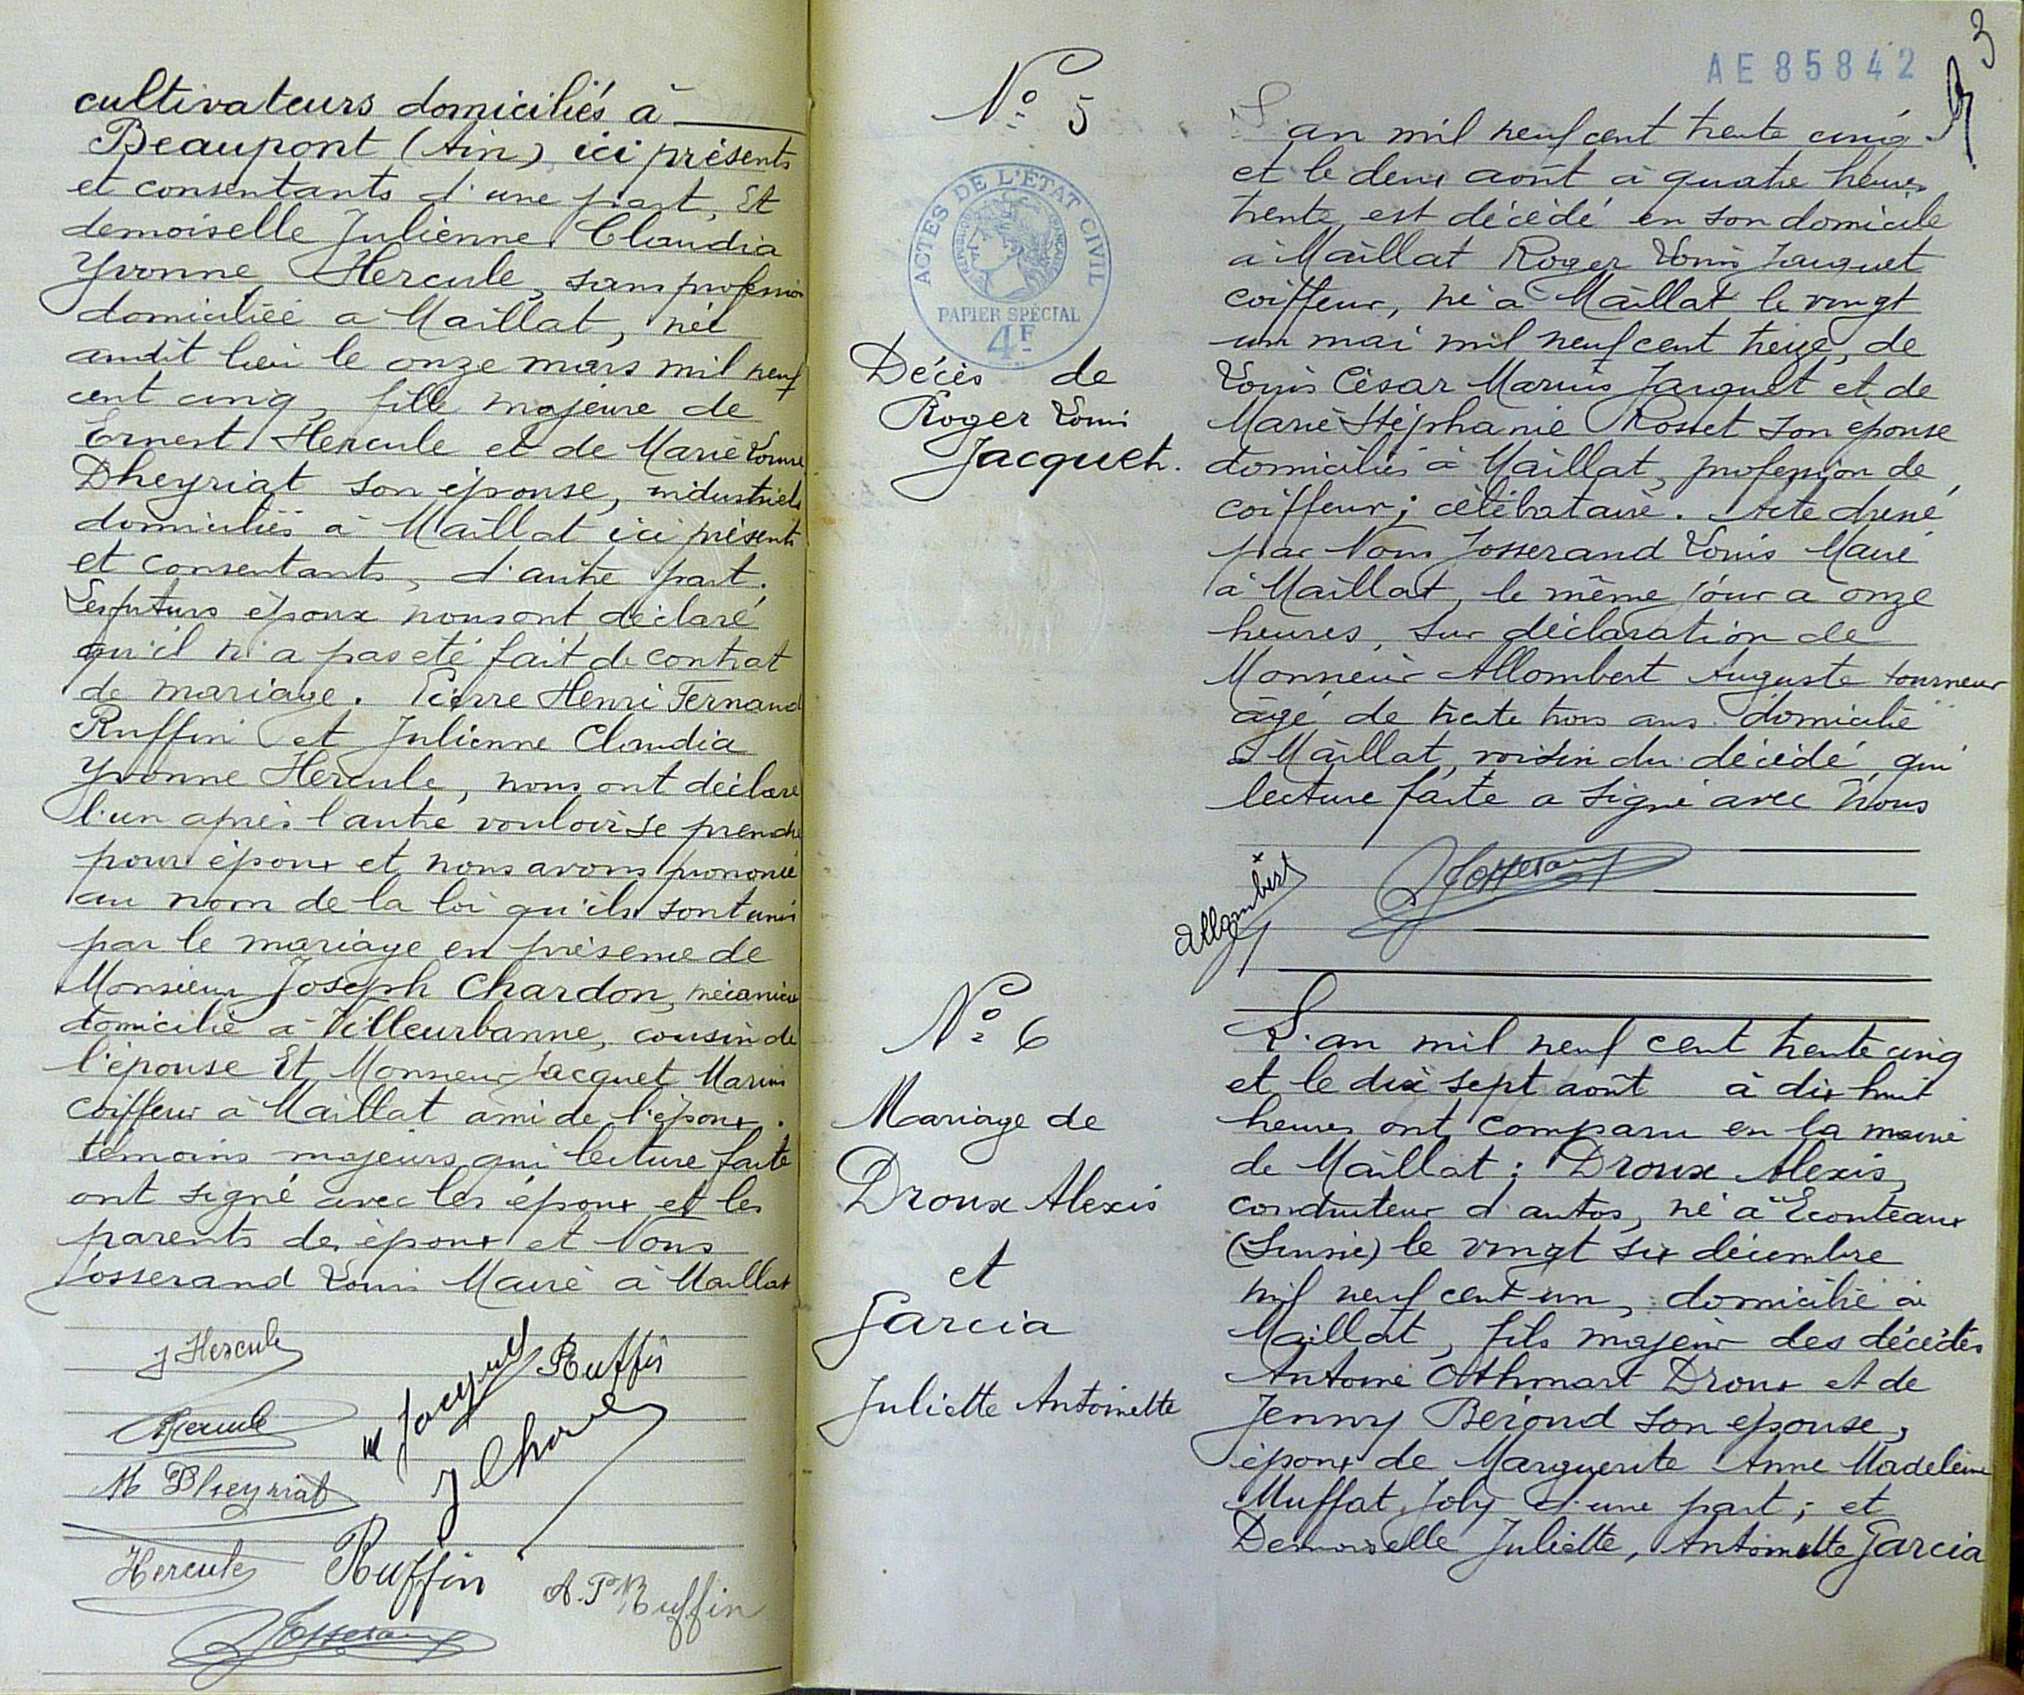 cultivateurs domiciliés à
Beaupont (Ain) ici présents
et consentants d'une part, Et
demoiselle Julienne Claudia
Yvonne Hercule, sans profession
domiciliée a Maillat, née
audit lieu le onze mars mil neuf
cent cinq, fille majeure de
Ernest Hercule et de Marie Louise
Dheyriat son épouse, industriels
domiciliés à Maillat ici présents
et consentants, d'autre part.
Les futurs époux nous ont déclaré
qu'il n'a pas été fait de contrat
de mariage. Pierre Henri Fernand
Ruffin et Julienne Claudia
Yvonne Hercule, nous ont déclaré
l'un après l'autre vouloir se prendre
pour époux et nous avons prononcé
au nom de la loi qu'ils sont unis
par le mariage en présence de
Monsieur Joseph Chardon, mécanicien
domicilié à Villeurbanne, cousin de
l'épouse Et Monsieur Jacquet Marius
coiffeur à Maillat ami de l'époux.
témoins majeurs, qui lecture faite
ont signé avec les époux et les
parents des époux et Nous
Josserand Louis Maire à Maillat
J Hercule
M Jacquet
Ruffin
Hercule
J Chardon
M Dheyriat
Hercule
Ruffin
A. Ruffin
Josserand
3
AE85842
N° 5
ACTES DE L'ÉTAT CIVIL
RÉPUBLIQUE FRANÇAISE
PAPIER SPÉCIAL
4F
Décès de
Roger Louis
Jacquet.
L'an mil neuf cent trente cinq
et le deux août à quatre heures
trente est décédé en son domicile
à Maillat Roger Louis Jacquet
coiffeur, né à Maillat le vingt
un mai mil neuf cent treize, de
Louis César Marius Jacquet et de
Marie Stéphanie Rosset son épouse
domiciliés à Maillat, profession de
coiffeur; célibataire. Acte dressé
par Nous Josserand Louis Maire
à Maillat, le même jour à onze
heures, sur déclaration de
Monsieur Allombert Auguste tourneur
âgé de trente trois ans domicilié
à Maillat, voisin du décédé, qui
lecture faite a signé avec Nous
Allombert
Josserand
N° 6
Mariage de
Droux Alexis
et
Garcia
Juliette Antoinette
L'an mil neuf cent trente cinq
et le dix sept août à dix huit
heures ont comparu en la mairie
de Maillat; Droux Alexis,
conducteur d'autos, né à Econteaux
le vingt six décembre
mil neuf cent un, domicilié à
Maillat, fils majeur des décédés
Antoine Othmart Droux et de
Jenny Beroud son épouse,
époux de Marguerite Anne Madeleine
Muffat Joly d'une part; et
Demoiselle Juliette, Antoinette Garcia